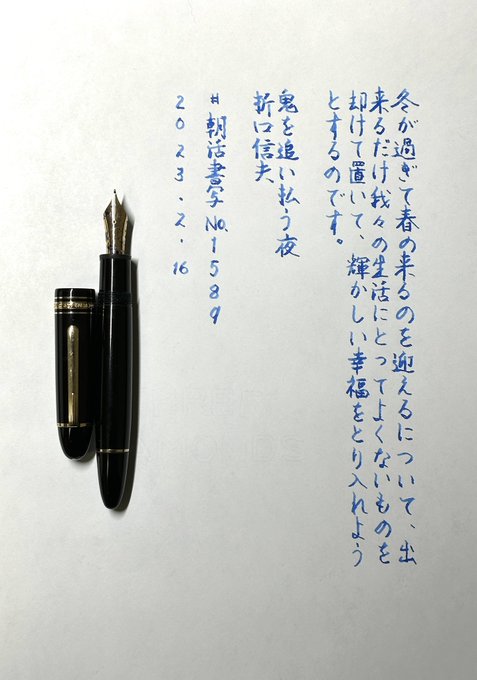 冬が過ぎて春の来るのを迎えるについて、出
来るだけ我々の生活にとってよくないものを
却けて置いて、輝かしい幸福をとり入れよう
とするのです。
鬼を追い払う夜
折口信夫
#朝活書写 No.1589
2023.2.16